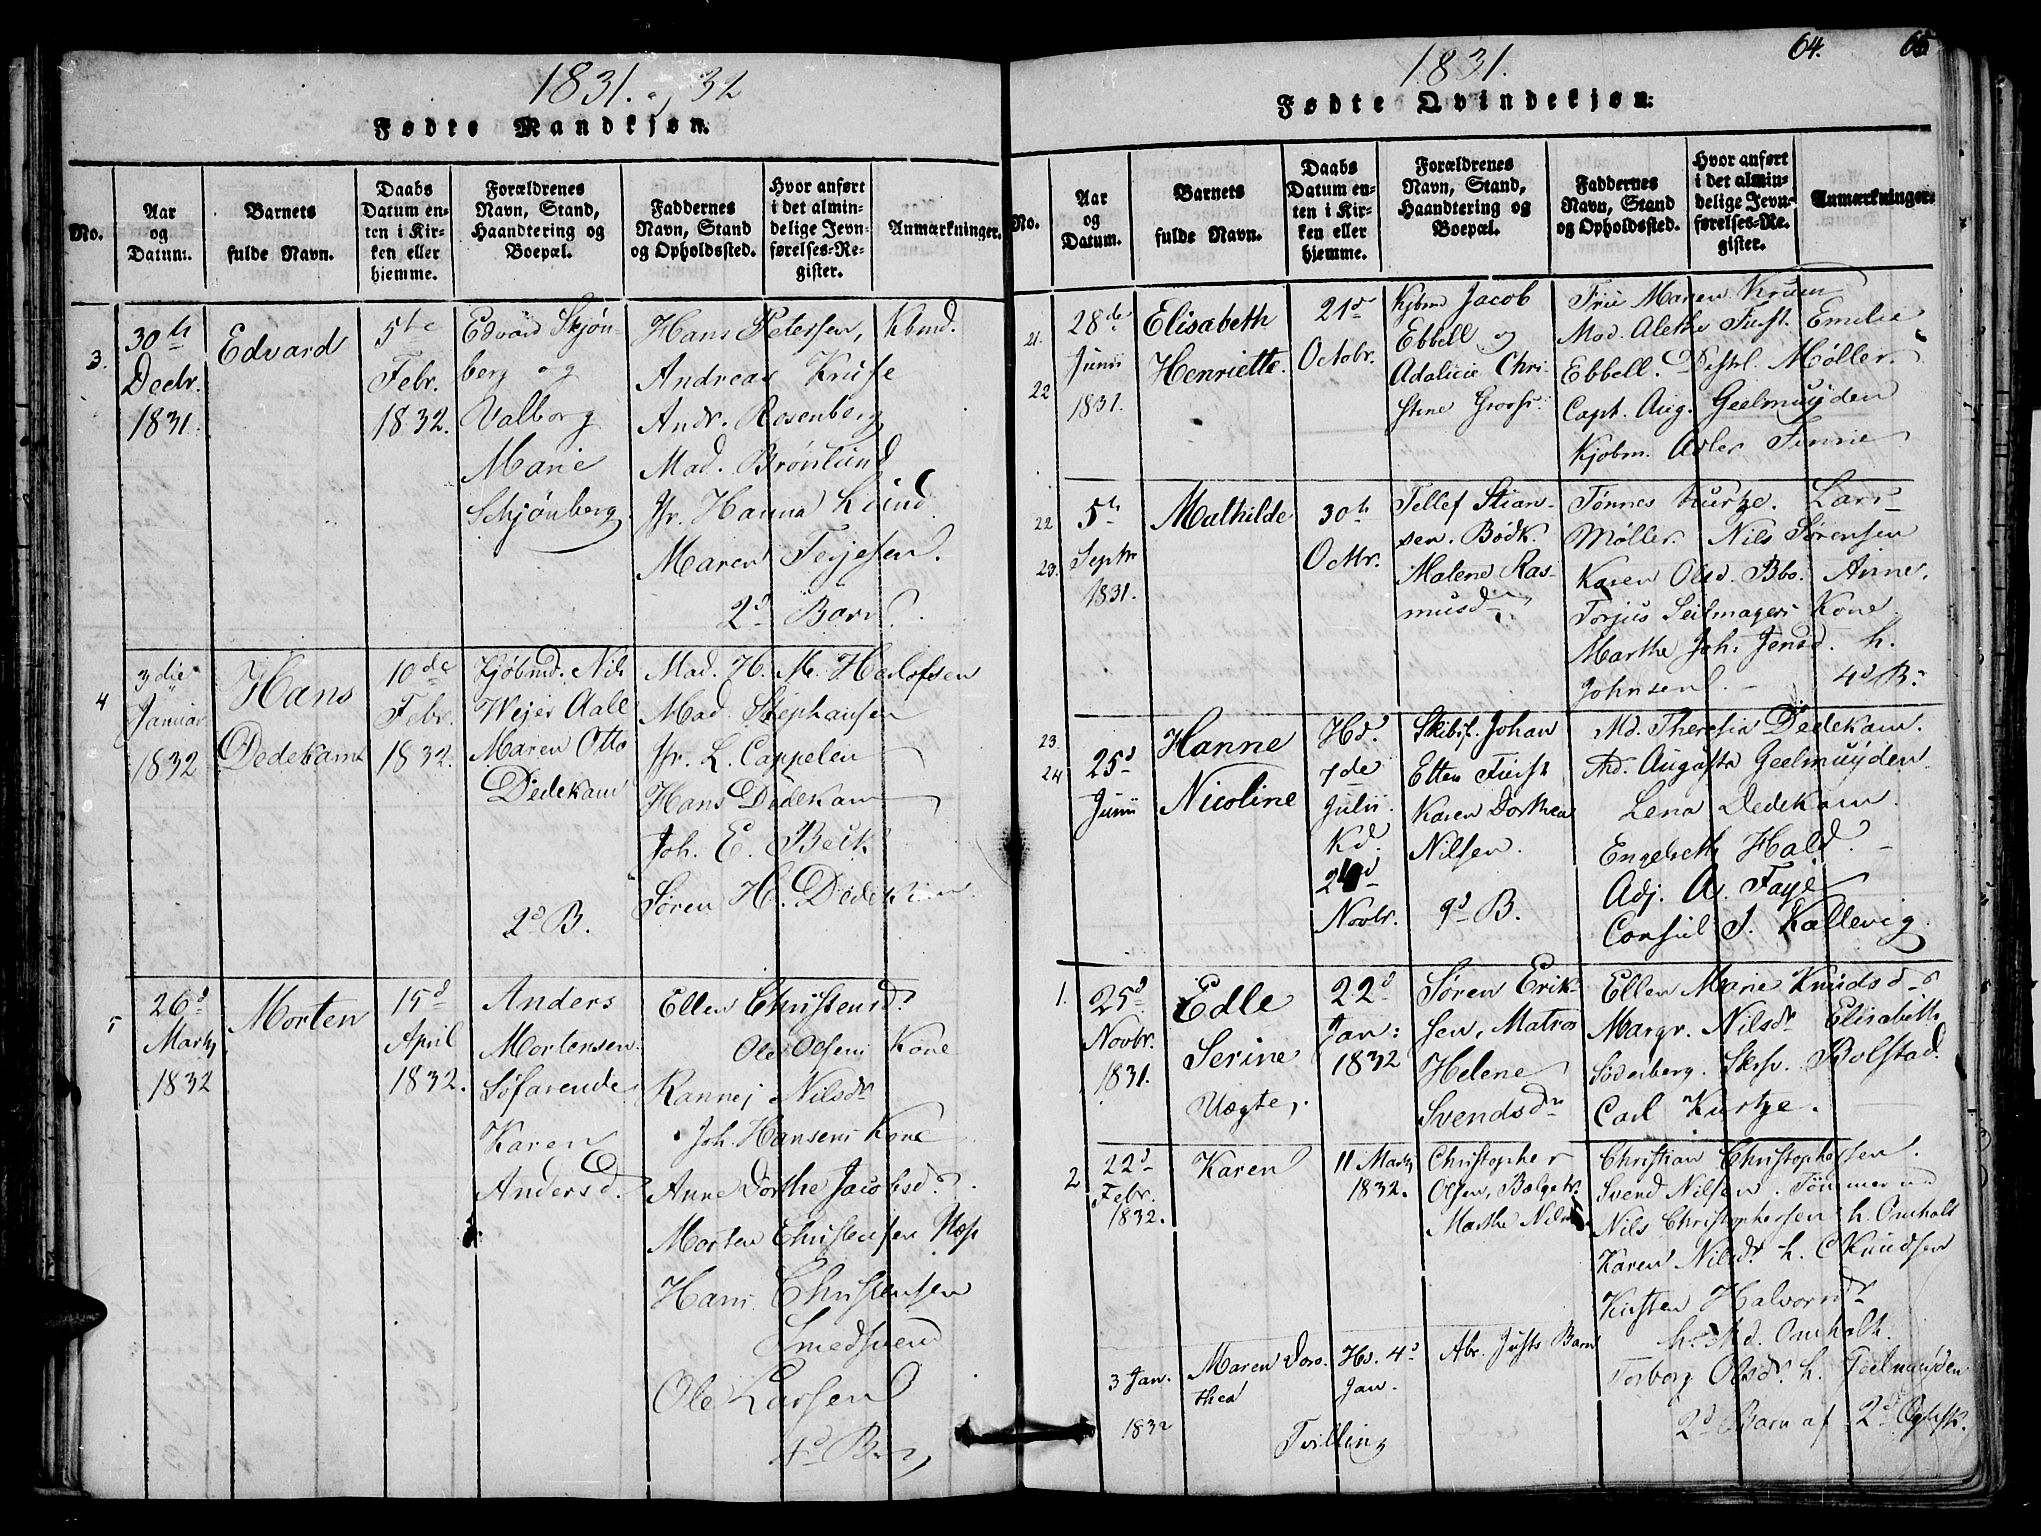 1831. og 32
Fødte Mandkjøn.
No.
Aar
og
Datum.
Barnets
fulde Navn.
Daabs
Datum en-
ten i Kir-
ken eller
hjemme.
Forældrenes
Navn, Stand,
Haandtering og
Boepæl.
Faddernes
Navn, Stand
og Opholdssted.
Hvor anført
i det almin-
delige Jevn-
førelses-Re-
gister.
Anmærkninger.
3.
30th
Decbr.
1831.
Edvard
5te
Febr.
1832.
Edvard Skjøn-
berg og
Valborg
Marie
Schjønberg
Hans Petersen, Kbmd.
Andreas Kruse
Andr. Rosenberg
Mad. Brønlund
Jfr. Hanna Lund
Maren Terjesen.
2d Barn
4
3die
Januar
1832
Hans
Dedekam
10de
Febr.
1832.
Kjøbmd. Nils
Wejer Aall
Maren Otto
Dedekam
2d B.
Mad. H. M. Herlofsen
Mad. Stephansen
Jfr. L. Cappelen
Hans Dedekam
Joh. E. Beck
Søren H. Dedekam
5
26d
Marts
1832
Morten
15d
April
1832.
Anders
Mortensen
Søfarende
Karen
Andersd.
Ellen Christensd.
Ole Olsens Kone
Rannej Nilsdr
Joh. Hansens Kone
Anne Dorthe Jacobsd.
Morten Christensen Næs
Hans Christensen
Smedsvend
Ole Larsen
4d B.
1831.
64. 65
Fødte Qvindekjøn.
No.
Aar
og
Datum.
Barnets
fulde Navn.
Daabs
Datum en-
ten i Kir-
ken eller
hjemme.
Forældrenes
Navn, Stand,
Haandtering og
Boepæl.
Faddernes
Navn, Stand
og Opholdssted.
Hvor anført
i det almin-
delige Jevn-
førelses-Re-
gister.
Anmærkninger.
21.
22
28de
Junii
1831.
Elisabeth
Henriette.
21d
Octobr.
Kjbmd Jacob
Ebbell og
Adalicie Chri-
stine
Frue Maren
Mad. Alethe Furst. Emilie
Ebbell. Distrl. Møller.
Capt. Aug. Geelmuyden
Kjøbm. Adler
22
23.
5th
Septbr
1831.
Mathilde
30th
Octbr.
Tellef Stian-
sen. Bødk.
Malene Ras-
musdr
Tønnes Kurtze. Lars
Møller. Nils Sørensen
Karen Olsd. Bbo. Anne.
Torjus Seilmagers Kone
Marthe Joh. Jensd. h.
Johnsen. 4d B.
23.
24
25d
Junii
Hanne
Nicoline
Hd.
7de
Julii.
Kd.
Novbr.
Skibsf. Johan
Elten Furst
Karen Dorthea
Nilsen.
9d B.
Md. Theresia Dedekam.
Md. Augusta Geelmuyden
Lena Dedekam.
Engelreth Hald.
Adj. A. Faye
Consul S. Kallevig
1.
25d
Novbr.
1831.
Edle
Serine
Uægte.
22d
Jan:
1832
Søren Erik-
sen, Matros
Helene
Svendsdr
Ellen Marie Knudsd
Margr. Nilsdr Elisabeth
Søderberg. Sksf. Bolstad.
Carl Kurtze.
2
22d
Febr.
1832.
Karen
11 Marts
1832.
Christopher
Olsen, Bælgetr.
Marthe Nilsdr
Christian Christophersen.
Svend Nilsen. Tømmermd
Nils Christophersen h. Omholt
Karen Nilsdr h. C Knudsen
Kirsten Halvorsdr
h. Md. Omholt.
Torborg Olsdr. h. Geelmuyden
2d Barn af 2d Ægtsk.
3 Jan.
1832
Maren Doro-
thea
Tvilling
Hd. 4d
Jan.
Abr. Justs Barn